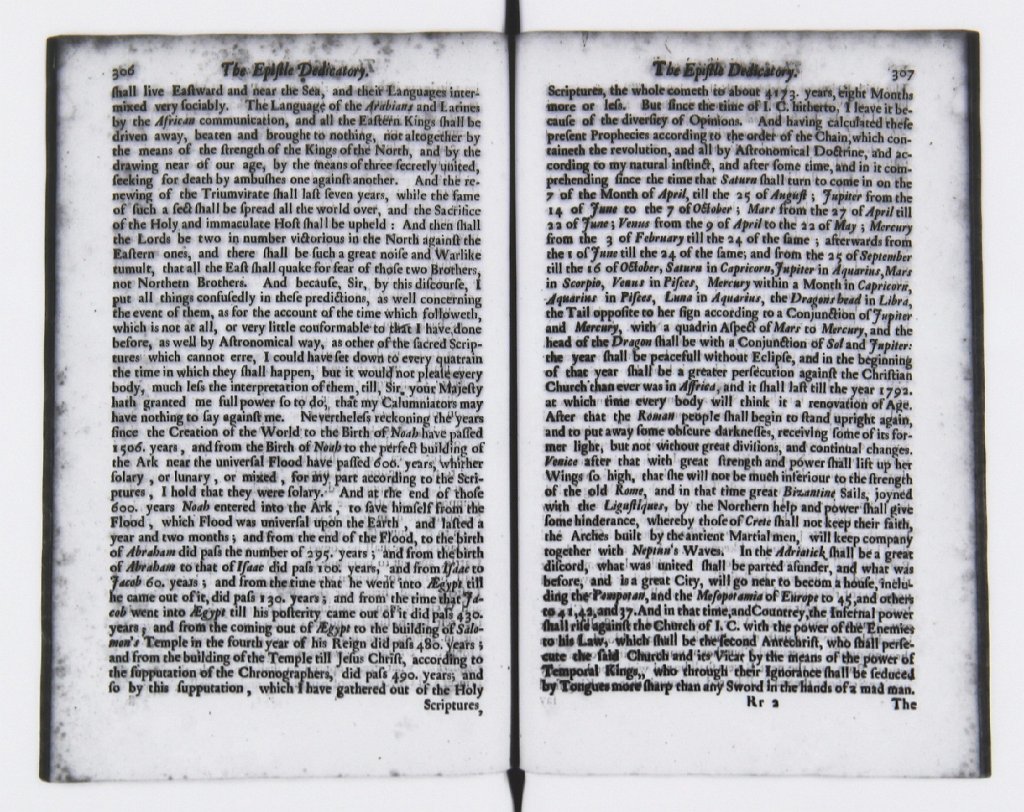 306
The Epistle Dedicatory.
ſhall live Eaſtward and near the Sea, and their Languages inter-
mixed very ſociably. The Language of the Arabians and Latines
by the African communication, and all the Eaſtern Kings ſhall be
driven away, beaten and brought to nothing, not altogether by
the means of the ſtrength of the Kings of the North, and by the
drawing near of our age, by the means of three ſecretly united,
ſeeking for death by ambuſhes one againſt another. And the re-
newing of the Triumvirate ſhall laſt ſeven years, while the fame
of ſuch a ſect ſhall be ſpread all the world over, and the Sacrifice
of the Holy and immaculate Hoſt ſhall be upheld : And then ſhall
the Lords be two in number victorious in the North againſt the
Eaſtern ones, and there ſhall be ſuch a great noiſe and Warlike
tumult, that all the Eaſt ſhall quake for fear of thoſe two Brothers,
not Northern Brothers. And becauſe, Sir, by this diſcourſe, I
put all things confuſedly in theſe predictions, as well concerning
the event of them, as for the account of the time which followeth,
which is not at all, or very little conformable to that I have done
before, as well by Aſtronomical way, as other of the ſacred Scrip-
tures which cannot erre, I could have ſet down to every quatrain
the time in which they ſhall happen, but it would not pleaſe every
body, much leſs the interpretation of them, till, Sir, your Majeſty
hath granted me full power ſo to do, that my Calumniators may
have nothing to ſay againſt me. Nevertheleſs reckoning the years
ſince the Creation of the World to the Birth of Noah have paſſed
1506. years, and from the Birth of Noah to the perfect building of
the Ark near the univerſal Flood have paſſed 600. years, whither
ſolary, or lunary, or mixed, for my part according to the Scri-
ptures, I hold that they were ſolary. And at the end of thoſe
600. years Noah entered into the Ark, to ſave himſelf from the
Flood, which Flood was univerſal upon the Earth, and laſted a
year and two months; and from the end of the Flood, to the birth
of Abraham did paſs the number of 295. years; and from the birth
of Abraham to that of Iſaac did paſs 100. years, and from Iſaac to
Jacob 60. years; and from the time that he went into Ægypt till
he came out of it, did paſs 130. years; and from the time that Ja-
cob went into Ægypt till his poſterity came out of it did paſs 430.
years; and from the coming out of Ægypt to the building of Salo-
mon's Temple in the fourth year of his Reign did paſs 480. years;
and from the building of the Temple till Jeſus Chriſt, according to
the ſupputation of the Chronographers, did paſs 490. years; and
ſo by this ſupputation, which I have gathered out of the Holy
Scriptures,
The Epiſtle Dedicatory.
307
Scriptures, the whole cometh to about 4173. years, eight Months
more or leſs. But ſince the time of I. C. hitherto, I leave it be-
cauſe of the diverſity of Opinions. And having calculated theſe
preſent Prophecies according to the order of the Chain, which con-
taineth the revolution, and all by Aſtronomical Doctrine, and ac-
cording to my natural inſtinct, and after ſome time, and in it com-
prehending ſince the time that Saturn ſhall turn to come in on the
7 of the Month of April, till the 25 of Auguſt; Jupiter from the
14 of June to the 7 of October; Mars from the 27 of April till
22 of June; Venus from the 9 of April to the 22 of May; Mercury
from the 3 of February till the 24 of the ſame; afterwards from
the 1 of June till the 24 of the ſame; and from the 25 of September
till the 16 of October, Saturn in Capricorn, Jupiter in Aquarius, Mars
in Scorpio, Venus in Piſces, Mercury within a Month in Capricorn,
Aquarius in Piſces, Luna in Aquarius, the Dragons head in Libra,
the Tail oppoſite to her ſign according to a Conjunction of Jupiter
and Mercury, with a quadrin Aſpect of Mars to Mercury, and the
head of the Dragon ſhall be with a Conjunction of Sol and Jupiter:
the year ſhall be peacefull without Eclipſe, and in the beginning
of that year ſhall be a greater perſecution againſt the Chriſtian
Church than ever was in Affrica, and it ſhall laſt till the year 1792.
at which time every body will think it a renovation of Age.
After that the Roman people ſhall begin to ſtand upright again,
and to put away ſome obſcure darkneſſes, receiving ſome of its for-
mer light, but not without great diviſions, and continual changes.
Venice after that with great ſtrength and power ſhall lift up her
Wings ſo high, that ſhe will not be much inferiour to the ſtrength
of the old Rome, and in that time great Bizantine Sails, joyned
with the Liguſtiques, by the Northern help and power ſhall give
ſome hinderance, whereby thoſe of Crete ſhall not keep their faith,
the Arches built by the antient Martial men, will keep company
together with Neptun's Waves. In the Adriatick ſhall be a great
diſcord, what was united ſhall be parted aſunder, and what was
before, and is a great City, will go near to becom a houſe, inclu-
ding the Pompotan, and the Meſopotamia of Europe to 45, and others
to 41, 42, and 37. And in that time, and Countrey, the Infernal power
ſhall riſe againſt the Church of I. C. with the power of the Enemies
to his Law, which ſhall be the ſecond Antechriſt, who ſhall perſe-
cute the ſaid Church and its Vicar by the means of the power of
Temporal Kings,, who through their Ignorance ſhall be ſeduced
by Tongues more ſharp than any Sword in the hands of a mad man.
Rr 2
The